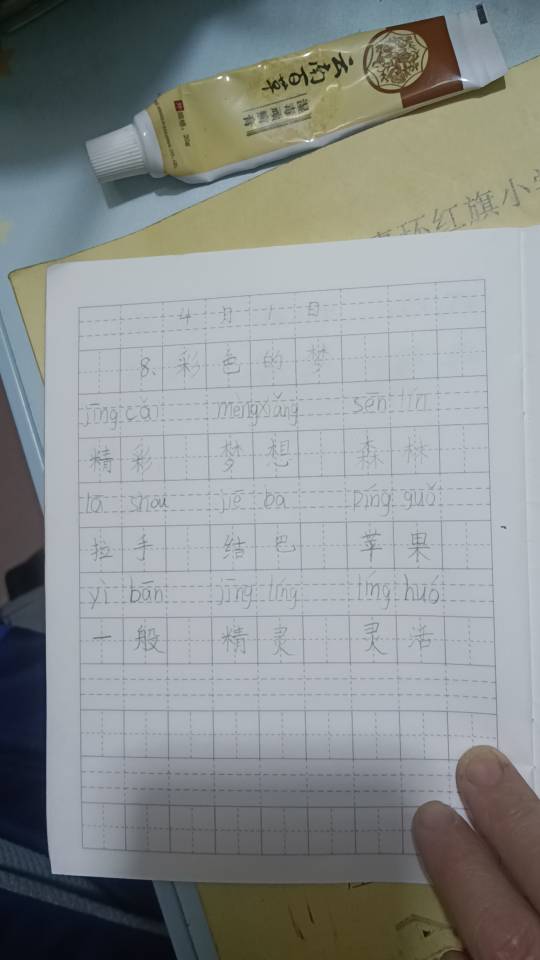 云南百草
4月1日
8、彩色的梦
jīng cǎi mèng xiǎng sēn lín
精彩 梦想 森林
lā shǒu jiē ba píng guǒ
拉手 结巴 苹果
yì bān jīng líng líng huó
一般 精灵 灵活